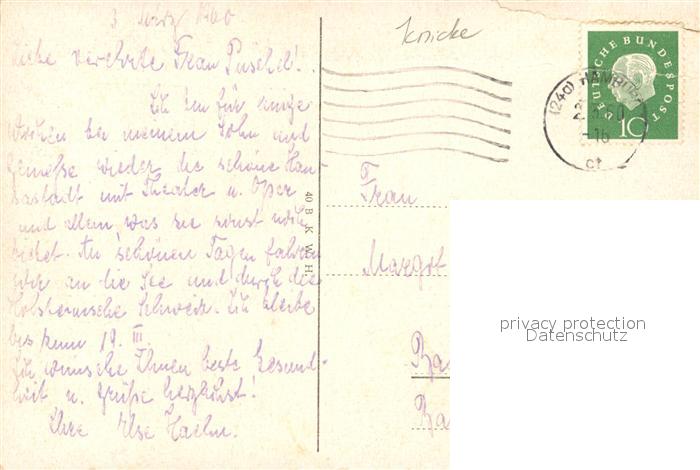 3. März 1960
Liebe verehrte Frau Puschel!
Ich bin für einige
Wochen bei meinem Sohn und
genieße wieder die schöne Han-
sastadt mit Theater u. Oper
und allem, was sie sonst noch
bietet. An schönen Tagen fahren
wir an die See und durch die
Holsteinische Schweiz. Ich bleibe
bis zum 19. III.
Ich wünsche Ihnen beste Gesund-
heit u. Grüße herzlichst!
Ihre Ilse
40 B K W. H.
Knicke
DEUTSCHE BUNDESPOST
10
(24a) HAMBURG
60
-16
Frau
Margot
Ba
Ba
privacy protection
Datenschutz